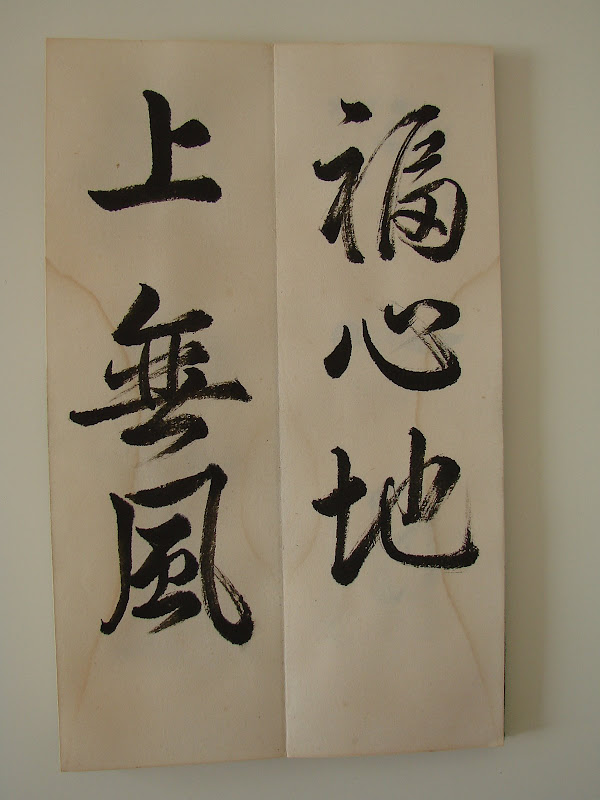 福心地
上無風